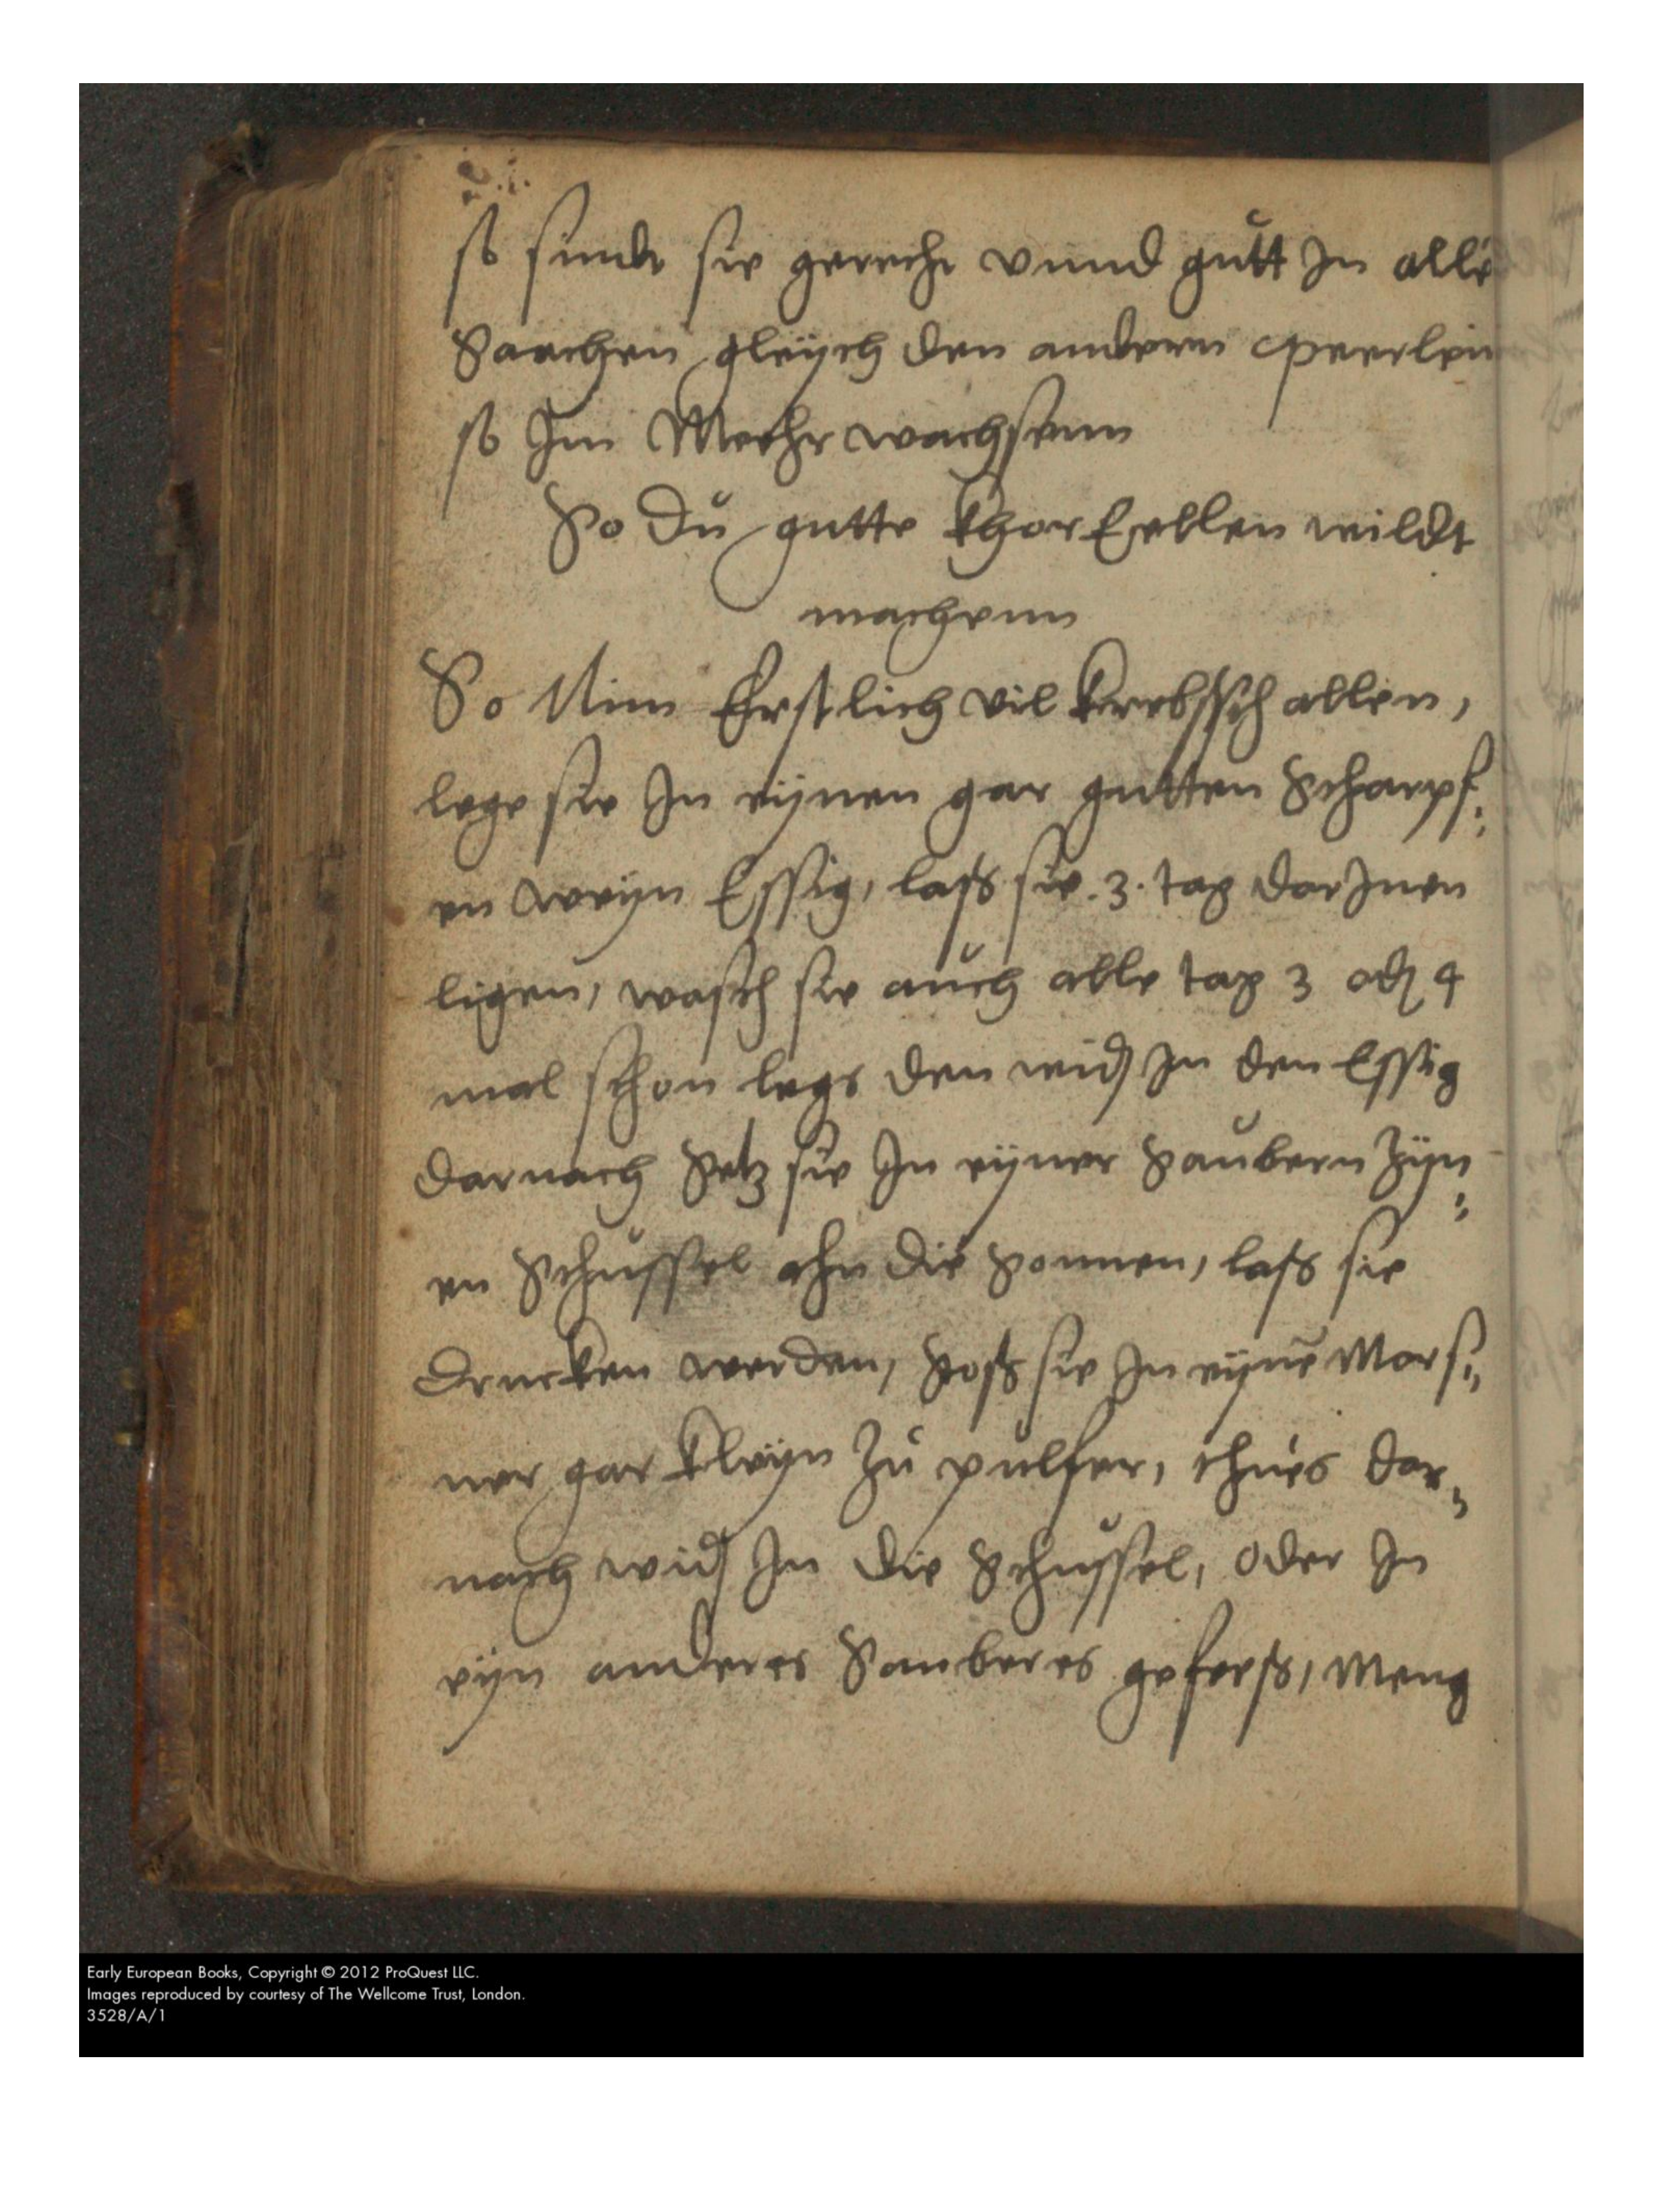 so sindt sie gerecht vnnd gutt In alle
Saachen gleÿch den andern peerlein
so Im Meehr wachsenn
So Du gutte khorEellen wildt
machenn
So Nim Erstlich vil krebsschallen,
lege sie In eÿnen gar gutten Scharpf:
en weÿn Essig, laß sie .3. tag darInen
ligen, wasch sie auch alle tag 3 od 4
mal schon legs den wid In den Essig
darnach Setz sie In eÿner Saubern Zÿn:
en Schussel ahn die Sonnen, laß sie
drucken werden, stoß sie In eÿnē Mors:
ner gar kleÿn Zu pulfer, thues dar:
nach wid In die Schussel, oder In
eÿn anderes Sauberes gefeeß, Meng
Early European Books, Copyright © 2012 ProQuest LLC.
Images reproduced by courtesy of The Wellcome Trust, London.
3528/A/1